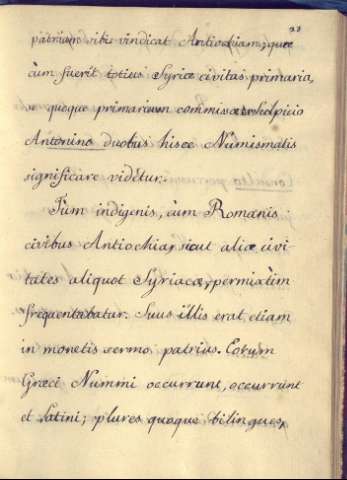 23
patrium sibi vindicat Antiochiam; quæ
cùm fuerit totius Syriæ civitas primaria,
se quoque primarium commisæ Sulpicio
Antonino duobus hisce Numismatis
significare videtur.
Tum indigenis, cùm Romanis
civibus Antiochia, sicut aliæ civi-
tates aliquot Syriacæ, permixtim
frequentabatur. Suus illis erat etiam
in monetis sermo patrius. Eorum
Græci Nummi occurrunt, occurrunt
et Latini; plures quoque bilingues,